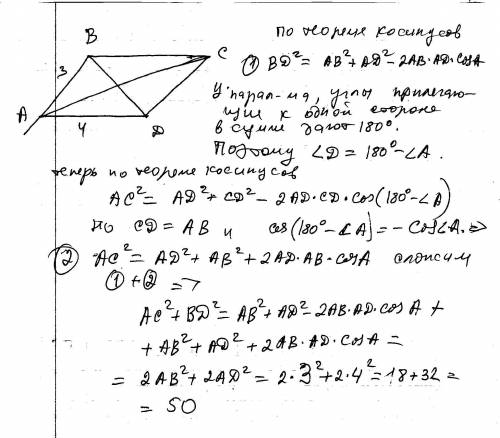 B
C
3
A
4
D
По теореме косинусов
① BD² = AB² + AD² - 2AB·AD·cosA
У парал-ма, углы прилегаю-
щие к одной стороне
в сумме дают 180°.
Поэтому ∠D = 180° - ∠A.
теперь по теореме косинусов
AC² = AD² + CD² - 2AD·CD·cos(180° - ∠A)
по CD = AB и cos(180° - ∠A) = - cos∠A. ⇒
② AC² = AD² + AB² + 2AD·AB·cosA сложим
① + ② ⇒
AC² + BD² = AB² + AD² - 2AB·AD·cos A +
+ AB² + AD² + 2AB·AD·cosA =
= 2AB² + 2AD² = 2·3² + 2·4² = 18 + 32 =
= 50